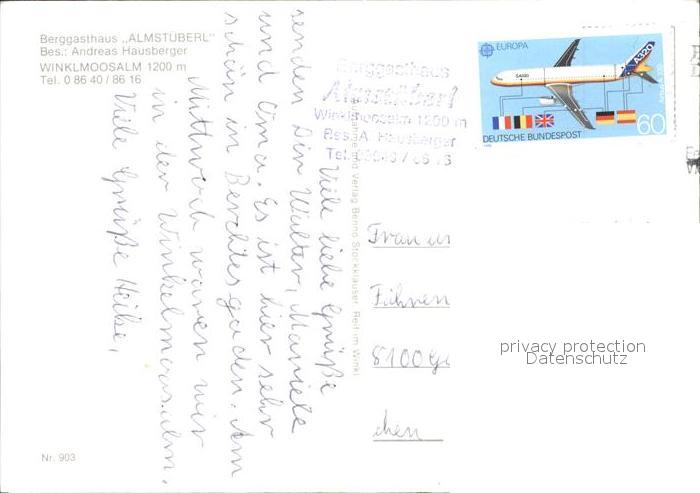 Berggasthaus „ALMSTÜBERL"
Bes.: Andreas Hausberger
WINKLMOOSALM 1200 m
Tel. 0 86 40 / 86 16
Berggasthaus
Almstüberl
Winklmoosalm 1200 m
Bes. A. Hausberger
Tel. 08640 / 86 16
EUROPA
A320
DEUTSCHE BUNDESPOST
60
Viele liebe Grüße
senden Dir Walter, Manuela
und Oma. Es ist hier sehr
schön in Berchtesgaden. Am
Mittwoch waren wir
in der Winkelmoosalm.
Viele Grüße Heike,
und Verlag Benno Stockklauser, Reit im Winkl
Frau
8100 Ga
chen
privacy protection
Datenschutz
Nr. 903